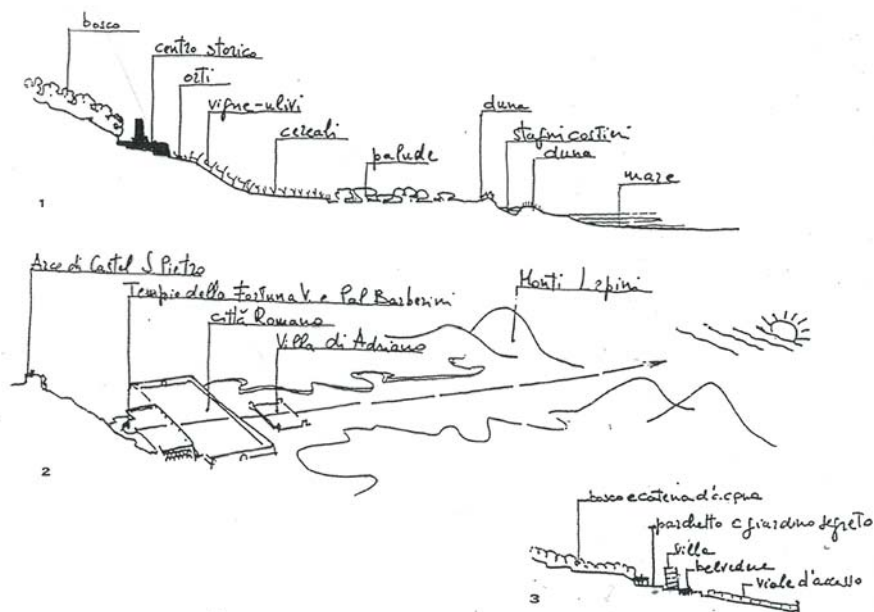 bosco
centro storico
orti
vigne-ulivi
cereali
palude
duna
stagni costieri
duna
mare
1
Arce di Castel S. Pietro
Tempio della Fortuna V. e Pal Barberini
città Romana
Villa di Adriano
Monti Lepini
2
bosco e catena d'acqua
parchetto e giardino segreto
villa
belvedere
viale d'accesso
3